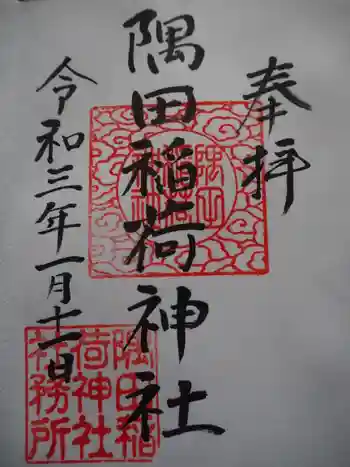 奉拝
隅田稲荷神社
令和三年一月十一日
隅田稲
荷神社
社務所